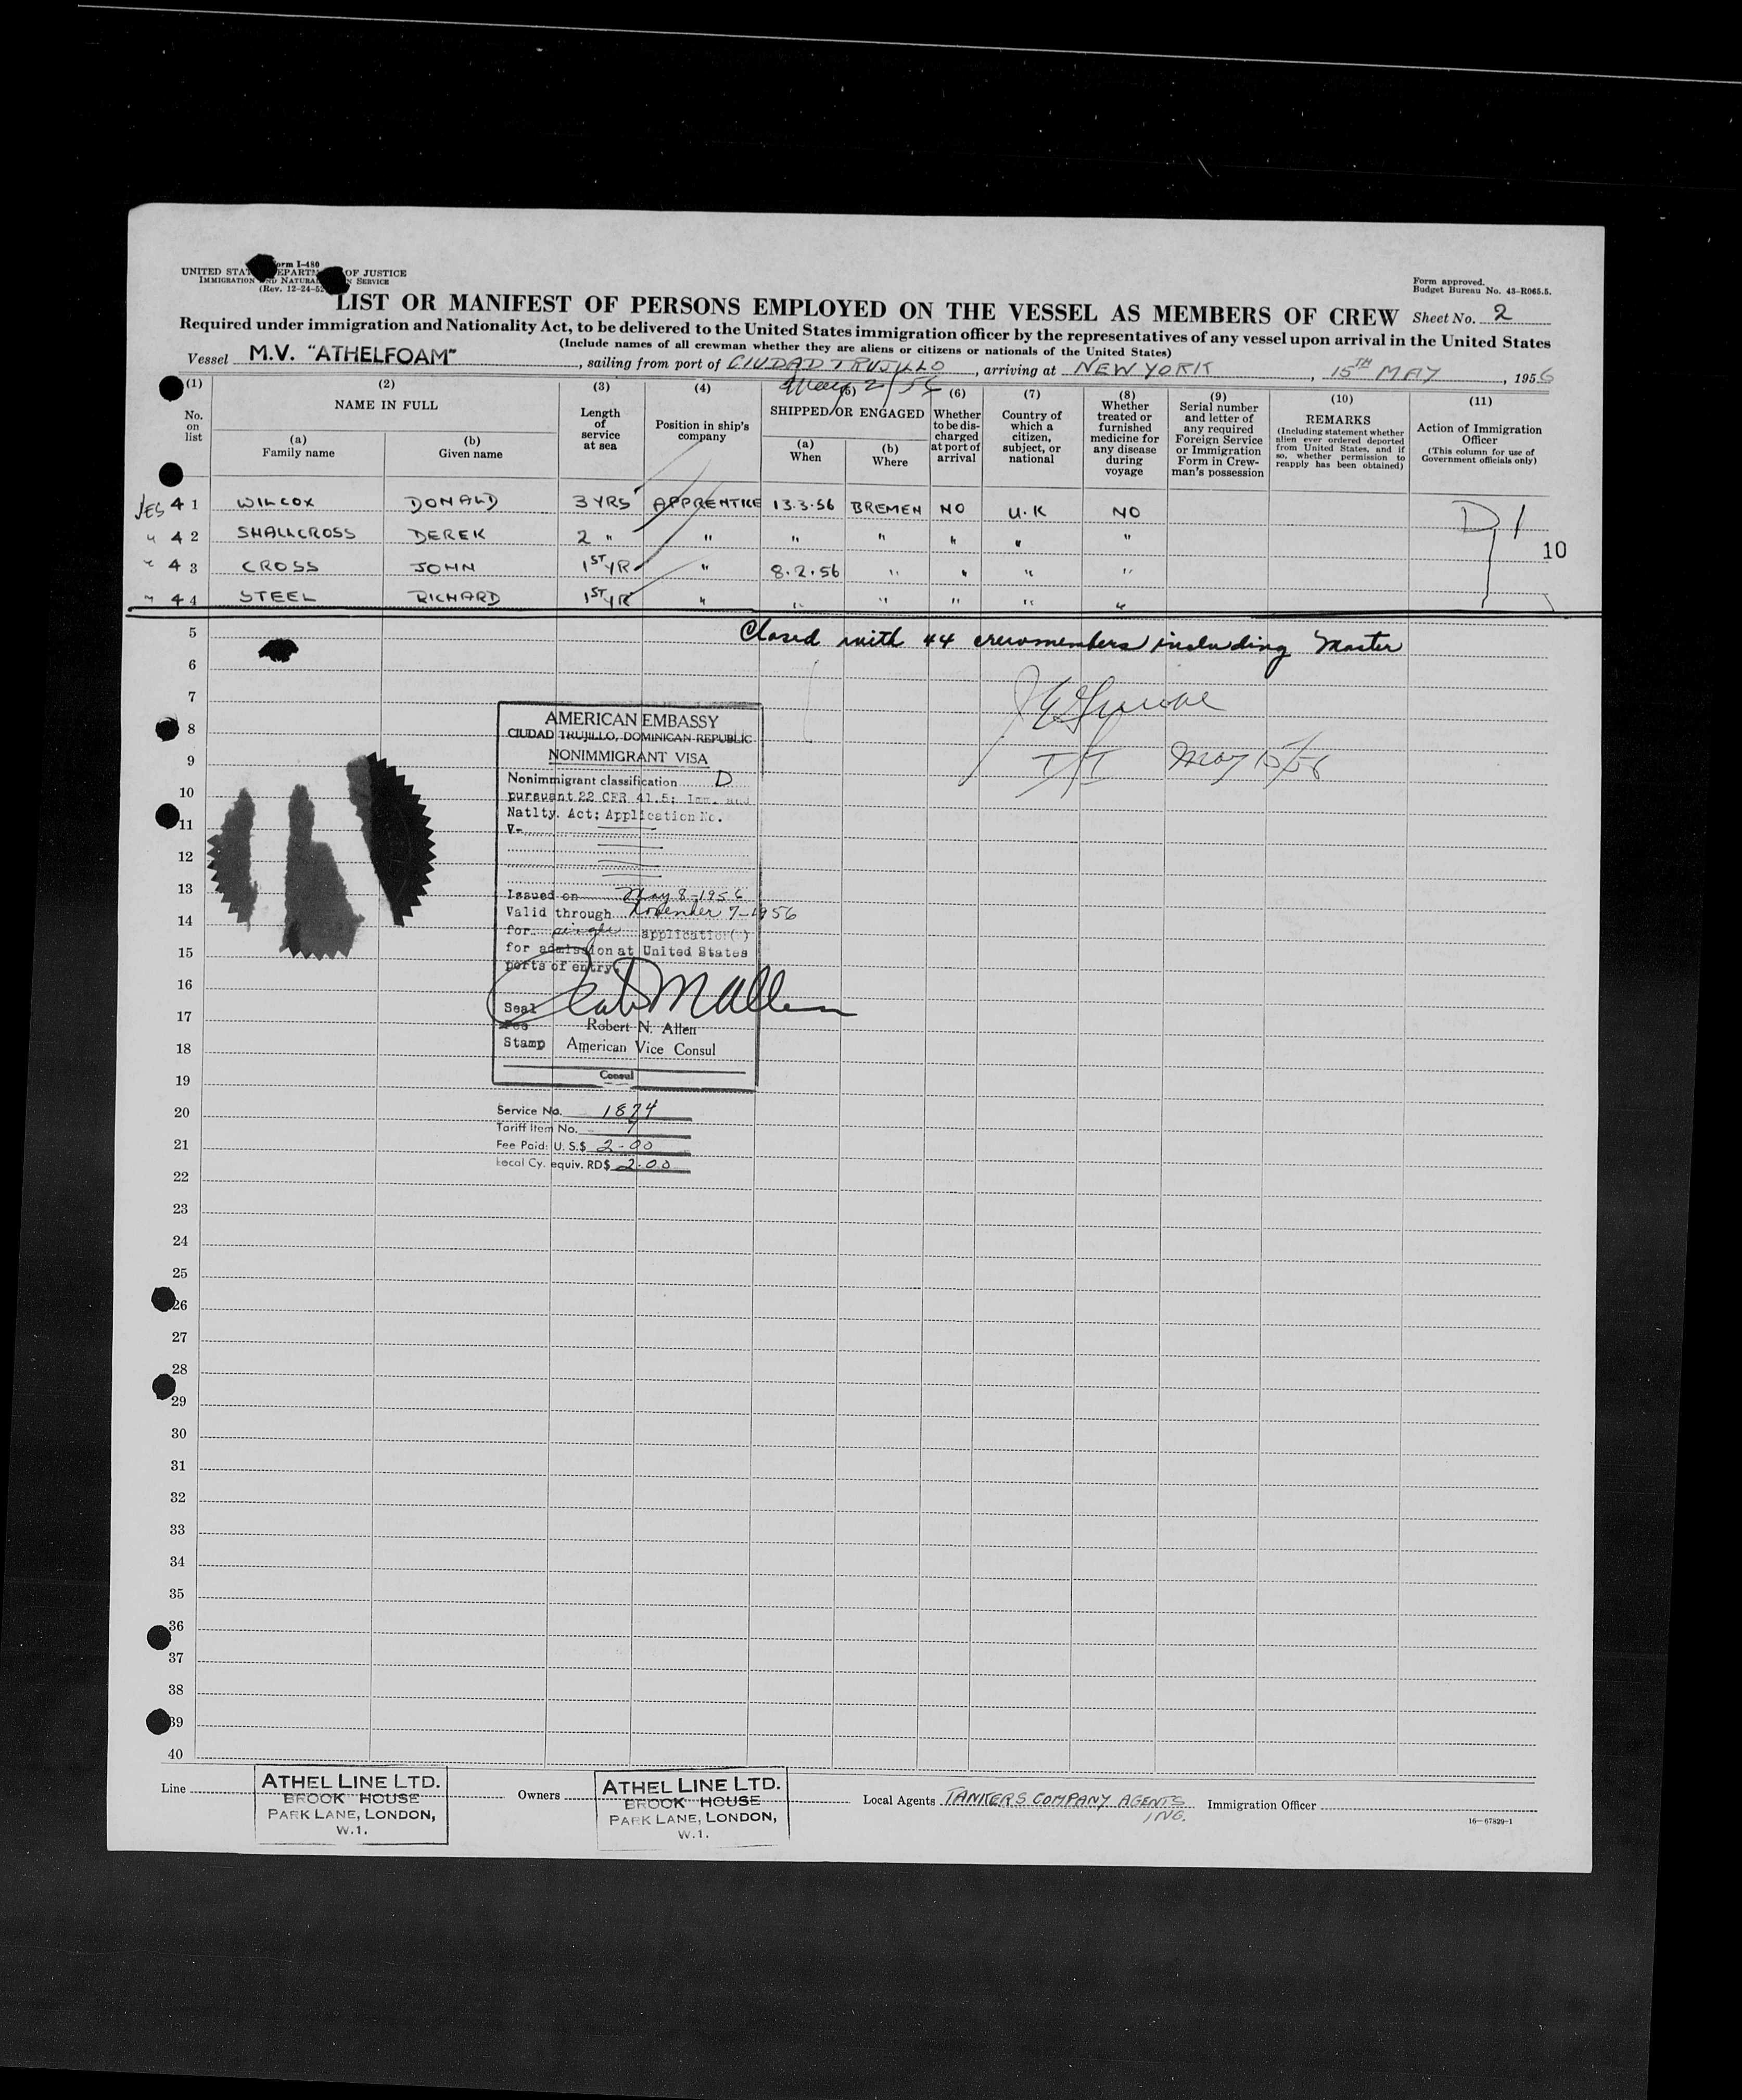 Form I-480
UNITED STATES DEPARTMENT OF JUSTICE
IMMIGRATION AND NATURALIZATION SERVICE
(Rev. 12-24-52)
Form approved.
Budget Bureau No. 43-R065.5.
LIST OR MANIFEST OF PERSONS EMPLOYED ON THE VESSEL AS MEMBERS OF CREW Sheet No. 2
Required under immigration and Nationality Act, to be delivered to the United States immigration officer by the representatives of any vessel upon arrival in the United States
(Include names of all crewman whether they are aliens or citizens or nationals of the United States)
Vessel M.V. "ATHELFOAM", sailing from port of CIUDAD TRUJILLO, arriving at NEW YORK, 15TH MAY, 1956
(1) No. on list
(2) NAME IN FULL
(a) Family name
(b) Given name
(3) Length of service at sea
(4) Position in ship's company
(5) SHIPPED OR ENGAGED
(a) When
(b) Where
(6) Whether to be discharged at port of arrival
(7) Country of which a citizen, subject, or national
(8) Whether treated or furnished medicine for any disease during voyage
(9) Serial number and letter of any required Foreign Service or Immigration Form in Crewman's possession
(10) REMARKS (Including statement whether alien ever ordered deported from United States, and if so, whether permission to reapply has been obtained)
(11) Action of Immigration Officer (This column for use of Government officials only)
YES 41 WILCOX DONALD 3 YRS APPRENTICE 13.3.56 BREMEN NO U.K NO D1
" 42 SHALLCROSS DEREK 2 " " " " " " "
10
" 43 CROSS JOHN 1ST YR " 8.2.56 " " " "
" 44 STEEL RICHARD 1ST YR " " " " " "
5 Closed with 44 crewmembers including Master
6
7
8
9
10
11
12
13
14
15
16
17
18
19
20
21
22
23
24
25
26
27
28
29
30
31
32
33
34
35
36
37
38
39
40
May 15/56
AMERICAN EMBASSY
CIUDAD TRUJILLO, DOMINICAN REPUBLIC
NONIMMIGRANT VISA
Nonimmigrant classification D
pursuant 22 CFR 41.5; Imm. and
Natlty. Act; Application No.
V-
Issued on May 8-1956
Valid through November 7-1956
for single application( )
for admission at United States
ports of entry.
Seal
Fee
Robert N. Allen
Stamp American Vice Consul
Consul
Service No. 1874
Tariff Item No. 7
Fee Paid: U.S.$ 2-00
Local Cy. equiv. RD$ 2.00
Line ATHEL LINE LTD.
BROOK HOUSE
PARK LANE, LONDON,
W.1.
Owners ATHEL LINE LTD.
BROOK HOUSE
PARK LANE, LONDON,
W.1.
Local Agents TANKERS COMPANY AGENTS
INC.
Immigration Officer
16—67829-1